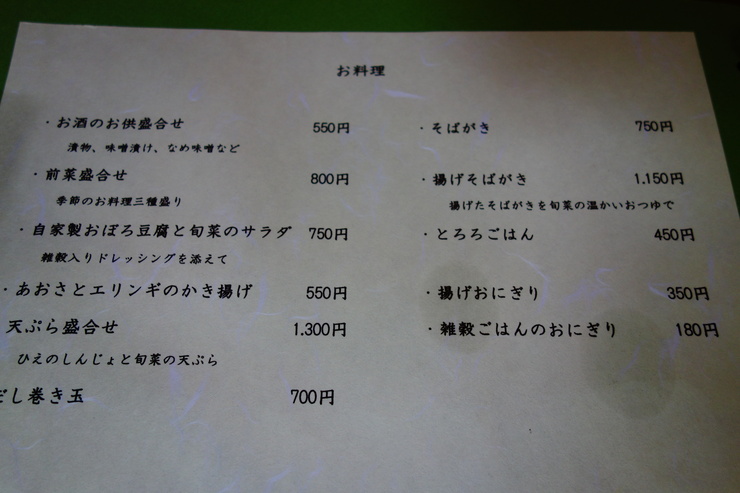 お料理
・お酒のお供盛合せ 550円
漬物、味噌漬け、なめ味噌など
・前菜盛合せ 800円
季節のお料理三種盛り
・自家製おぼろ豆腐と旬菜のサラダ 750円
雑穀入りドレッシングを添えて
・あおさとエリンギのかき揚げ 550円
天ぷら盛合せ 1.300円
ひえのしんじょと旬菜の天ぷら
だし巻き玉 700円
・そばがき 750円
・揚げそばがき 1.150円
揚げたそばがきを旬菜の温かいおつゆで
・とろろごはん 450円
・揚げおにぎり 350円
・雑穀ごはんのおにぎり 180円